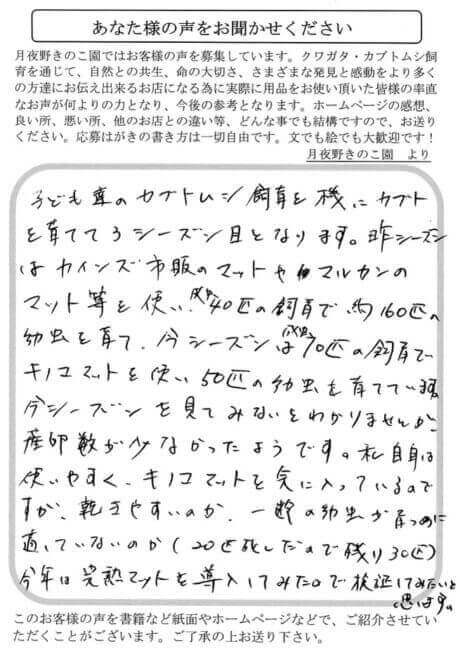 あなた様の声をお聞かせください
月夜野きのこ園ではお客様の声を募集しています。クワガタ・カブトムシ飼
育を通じて、自然との共生、命の大切さ、さまざまな発見と感動をより多く
の方達にお伝え出来るお店になる為に実際に用品をお使い頂いた皆様の率直
なお声が何よりの力となり、今後の参考となります。ホームページの感想、
良い所、悪い所、他のお店との違い等、どんな事でも結構ですので、お送り
ください。応募はがきの書き方は一切自由です。文でも絵でも大歓迎です！
月夜野きのこ園　より
子ども達のカブトムシ飼育を機にカブト
を育てて3シーズン目となります。昨シーズン
はカインズ市販のマットやマルカンの
マット等を使い、成虫40匹の飼育で約160匹の
幼虫を育て、今シーズンは成虫70匹の飼育で
キノコマットを使い50匹の幼虫を育てています。
今シーズンを見てみないとわかりませんが、
産卵数が少なかったようです。私自身は
使いやすく、キノコマットを気に入っているので
すが、乾きやすいのか、一齢の幼虫が育つのに
適していないのか（20匹死んだので残り30匹）
今年は完熟マットを導入してみたので検証してみたいと
思います。
このお客様の声を書籍など紙面やホームページなどで、ご紹介させてい
ただくことがございます。ご了承の上お送り下さい。